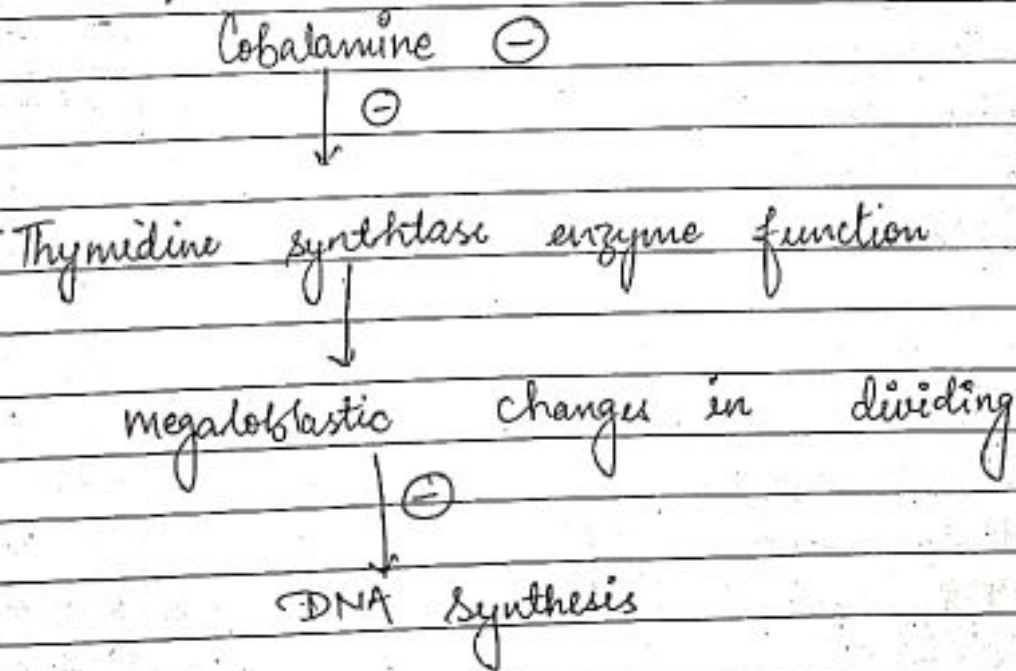 Cobalamine ⊖
⊖
Thymidine synthtase enzyme function
megaloblastic changes in dividing
⊖
DNA synthesis